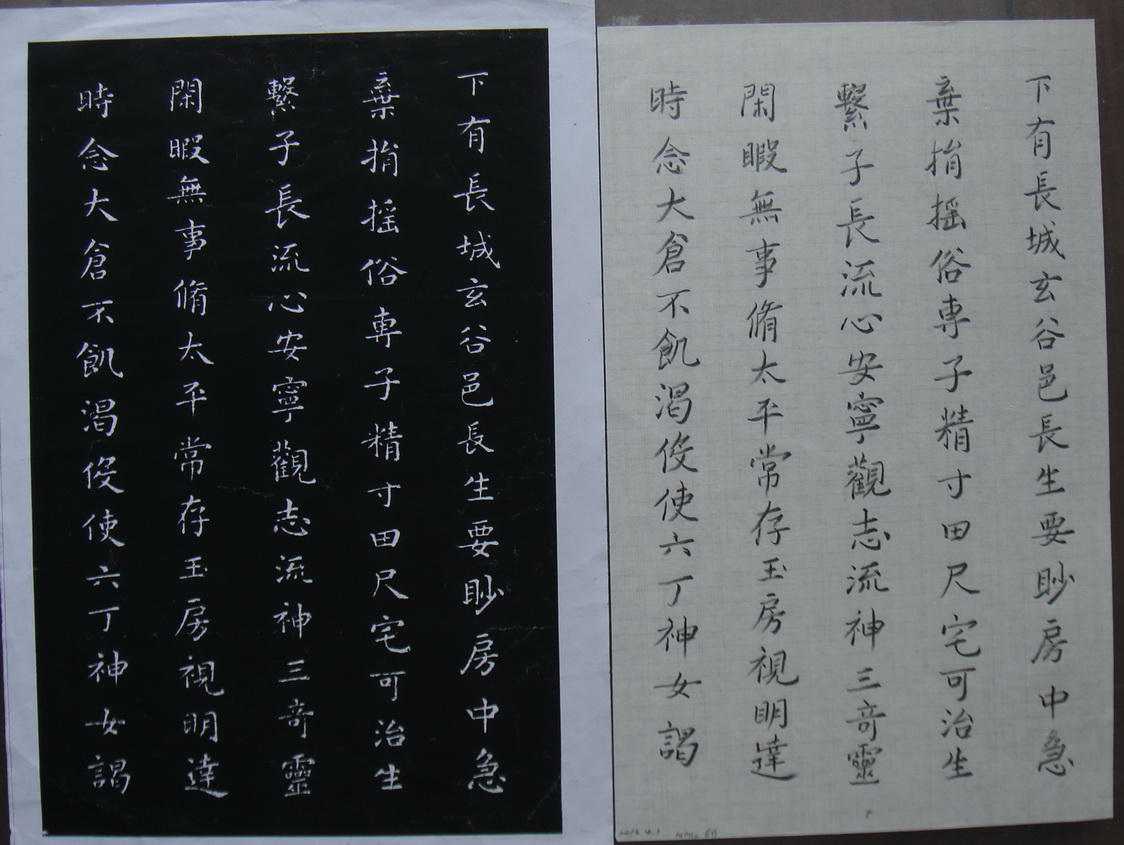 下有長城玄谷邑長生要眇房中急
棄捐揺俗專子精寸田尺宅可治生
繫子長流心安寧觀志流神三奇靈
閑暇無事脩太平常存玉房視明達
時念大倉不飢渴役使六丁神女謁
下有長城玄谷邑長生要眇房中急
棄捐揺俗專子精寸田尺宅可治生
繫子長流心安寧觀志流神三奇靈
閑暇無事脩太平常存玉房視明達
時念大倉不飢渴役使六丁神女謁